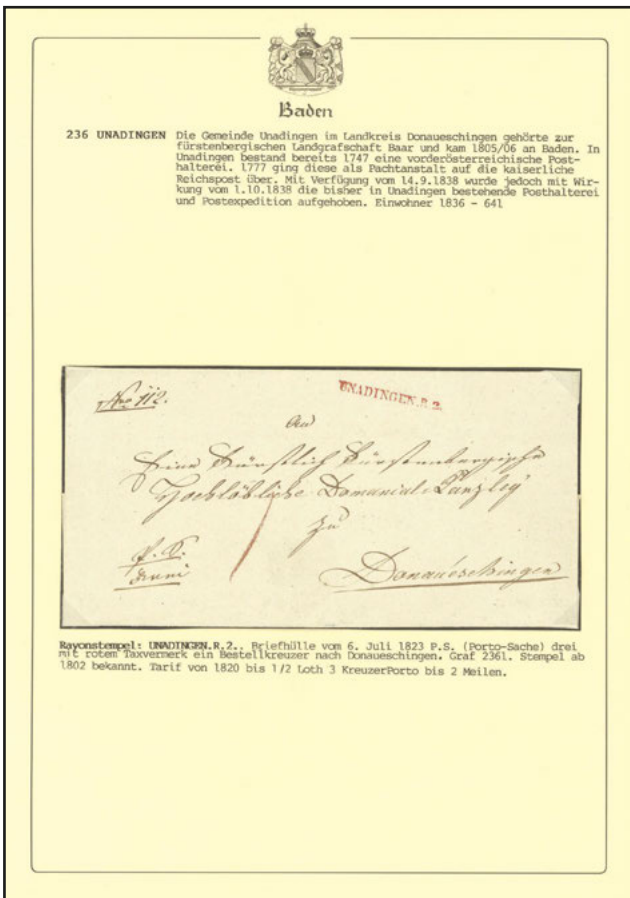 Baden
236 UNADINGEN Die Gemeinde Unadingen im Landkreis Donaueschingen gehörte zur
fürstenbergischen Landgrafschaft Baar und kam 1805/06 an Baden. In
Unadingen bestand bereits 1747 eine vorderösterreichische Post-
halterei. 1777 ging diese als Pachtanstalt auf die kaiserliche
Reichspost über. Mit Verfügung vom 14.9.1838 wurde jedoch mit Wir-
kung vom 1.10.1838 die bisher in Unadingen bestehende Posthalterei
und Postexpedition aufgehoben. Einwohner 1836 - 641
UNADINGEN.R.2.
Nro 112.
An
Eine Fürstlich Fürstenbergische
Hochlöbliche Domanial-Canzley
zu
P. S.
Donaueschingen
Rayonstempel: UNADINGEN.R.2.. Briefhülle vom 6. Juli 1823 P.S. (Porto-Sache) drei
mit rotem Taxvermerk ein Bestellkreuzer nach Donaueschingen. Graf 2361. Stempel ab
1802 bekannt. Tarif von 1820 bis 1/2 Loth 3 KreuzerPorto bis 2 Meilen.